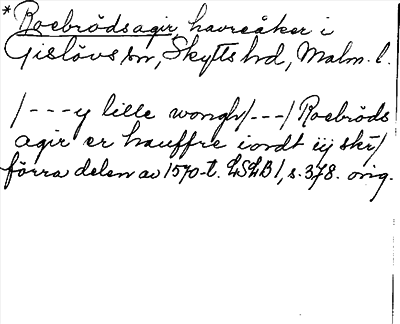 *Roebrödsagir, havreåker i
Gislövs sn, Skytts hd, Malm. l.
/---y lille wongh/---/Roebröds
agir er hauffre iordt iij skr/
förra delen av 1570-t. LSLB1, s. 378. orig.